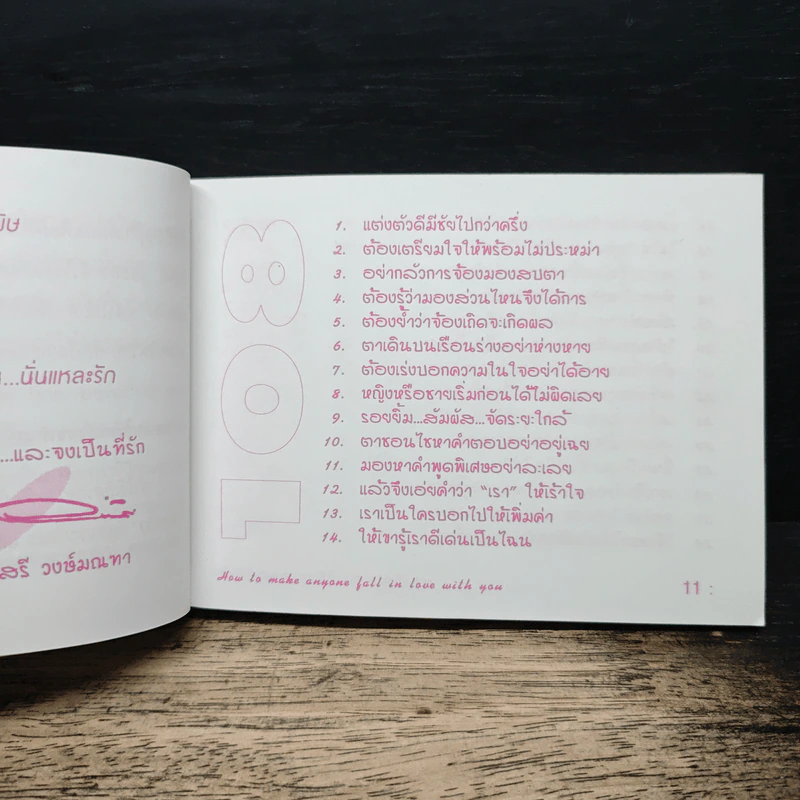 ...นั่นแหละรัก
...และจงเป็นที่รัก
เสรี วงษ์มณฑา
108
1. แต่งตัวดีมีชัยไปกว่าครึ่ง
2. ต้องเตรียมใจให้พร้อมไม่ประหม่า
3. อย่ากลัวการจ้องมองสบตา
4. ต้องรู้ว่ามองส่วนไหนจึงได้การ
5. ต้องย้ำว่าจ้องเถิดจะเกิดผล
6. ตาเดินบนเรือนร่างอย่าห่างหาย
7. ต้องเร่งบอกความในใจอย่าได้อาย
8. หญิงหรือชายเริ่มก่อนได้ไม่ผิดเลย
9. รอยยิ้ม...สัมผัส...จัดระยะใกล้
10. ตาชอนไชหาคำตอบอย่าอยู่เฉย
11. มองหาคำพูดพิเศษอย่าละเลย
12. แล้วจึงเอ่ยคำว่า "เรา" ให้เร้าใจ
13. เราเป็นใครบอกไปให้เพิ่มค่า
14. ให้เขารู้เราดีเด่นเป็นไฉน
How to make anyone fall in love with you
11 :